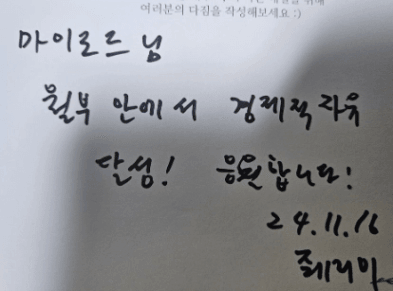 여러분의 다짐을 작성해보세요 :)
마이로르 님
월부 안에서 경제적 자유
달성! 응원합니다!
24.11.16
쮸리아